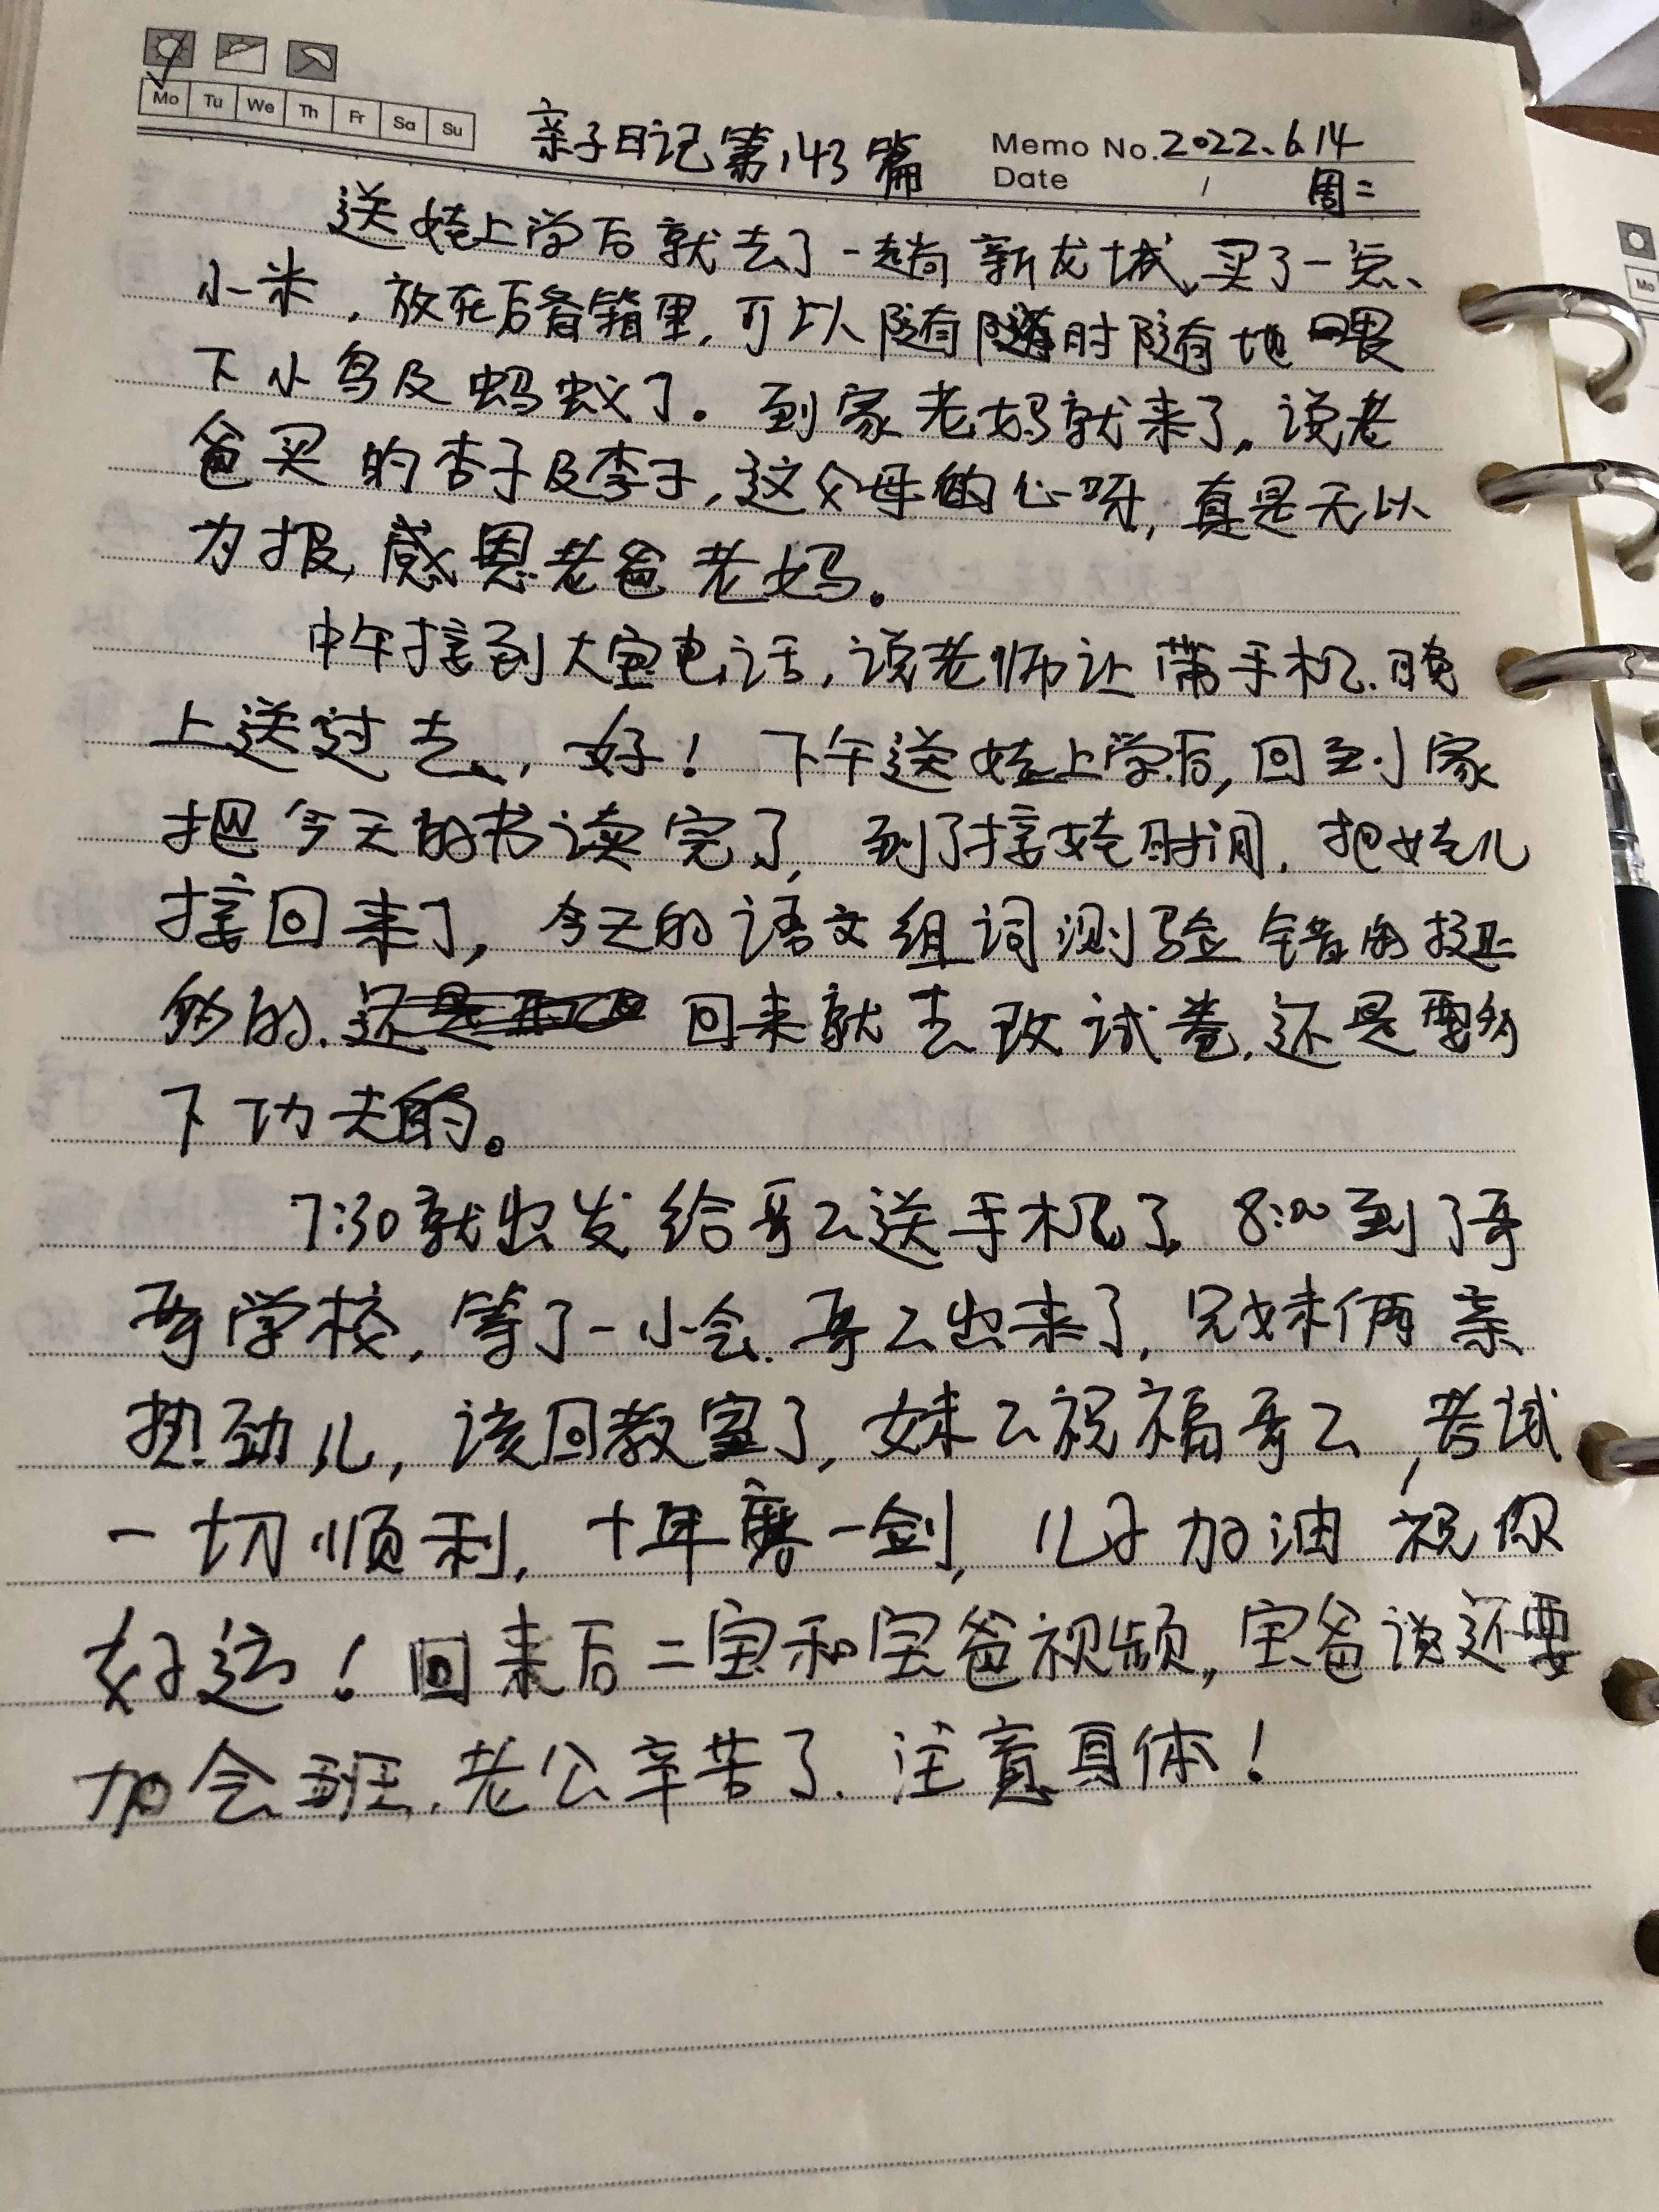 Mo Tu We Th Fr Sa Su
亲子日记第143篇
Memo No. 2022.6.14
Date / 周二
送娃上学后就去了一趟新龙城,买了一点、
小米,放在后备箱里,可以随随时随地喂
下小鸟及蚂蚁了。到家老妈就来了,说老
爸买的杏子及李子,这父母的心呀,真是无以
为报,感恩老爸老妈。
中午接到大宝电话,说老师让带手机.晚
上送过去,好!下午送娃上学后,回到家
把今天的书读完了,到了接娃时间.把娃儿
接回来了,今天的语文组词测验错的挺
多的.回来就去改试卷,还是要多
下功夫的。
7:30就出发给哥哥送手机了,8:00到了哥
哥学校,等了一小会.哥哥出来了,兄妹俩亲
热劲儿,该回教室了,妹妹祝福哥哥,考试
一切顺利,十年磨一剑,儿子加油祝你
好运!回来后二宝和宝爸视频,宝爸说还要
加会班,老公辛苦了.注意身体!
Mo